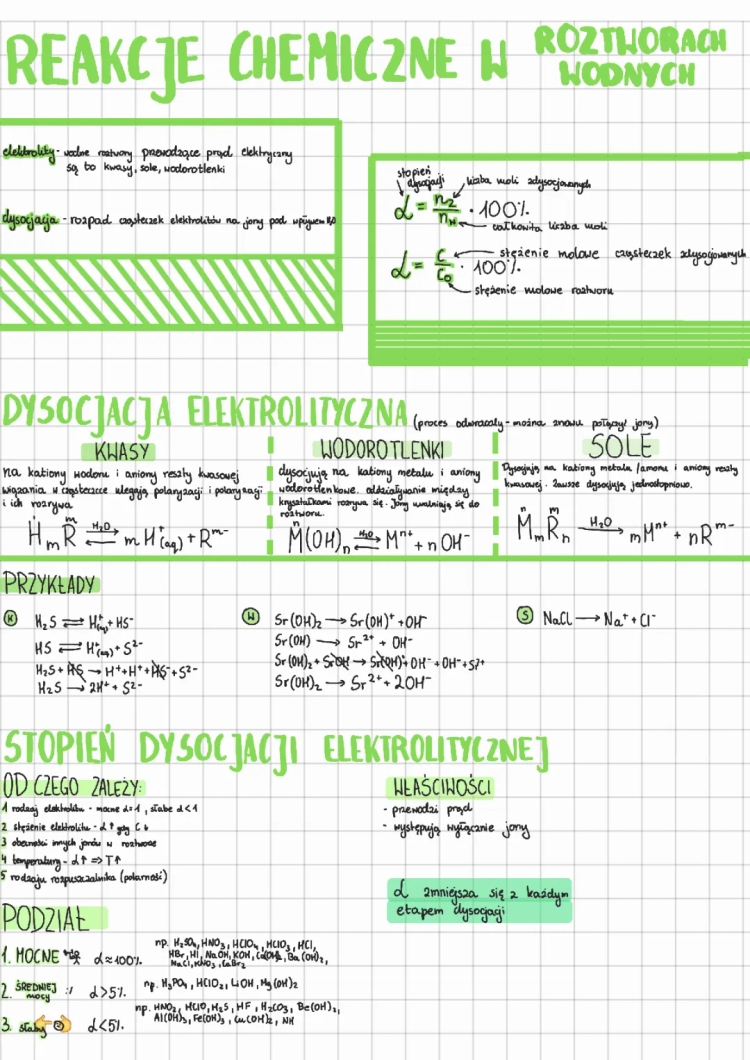 REAKCJE CHEMICZNE W ROZTWORACH WODNYCH
elektrolity - wodne roztwory przewodzące prąd elektryczny
są to kwasy, sole, wodorotlenki
dysocjacja - rozpad cząsteczek elektrolitów na jony pod wpływem H₂O
stopień dysocjacji
liczba moli zdysocjowanych
α = n_z / n_w · 100%
całkowita liczba moli
α = C / C₀ · 100%
stężenie molowe cząsteczek zdysocjowanych
stężenie molowe roztworu
DYSOCJACJA ELEKTROLITYCZNA (proces odwracalny - można znowu połączyć jony)
KWASY
na kationy wodoru i aniony reszty kwasowej
wiązania w cząsteczce ulegają polaryzacji i polaryzacji
i ich rozrywa
HₘR ⇌ mH⁺(aq) + Rᵐ⁻
H₂O
WODOROTLENKI
dysocjują na kationy metalu i aniony
wodorotlenkowe. oddziaływanie między
kryształkami rozrywa się. Jony uwalniają się do
roztworu.
M(OH)ₙ ⇌ Mⁿ⁺ + nOH⁻
H₂O
SOLE
Dysocjują na kationy metalu / amonu i aniony reszty
kwasowej. Zawsze dysocjują jednostopniowo.
MₘRₙ → mMⁿ⁺ + nRᵐ⁻
H₂O
PRZYKŁADY
K
H₂S ⇌ H⁺(aq) + HS⁻
HS ⇌ H⁺(aq) + S²⁻
H₂S + HS → H⁺ + H⁺ + HS⁻ + S²⁻
H₂S → 2H⁺ + S²⁻
W
Sr(OH)₂ → Sr(OH)⁺ + OH⁻
Sr(OH) → Sr²⁺ + OH⁻
Sr(OH)₂ + SrOH → Sr(OH)⁺ + OH⁻ + OH⁻ + S²⁺
Sr(OH)₂ → Sr²⁺ + 2OH⁻
S
NaCl → Na⁺ + Cl⁻
STOPIEŃ DYSOCJACJI ELEKTROLITYCZNEJ
OD CZEGO ZALEŻY:
1 rodzaj elektrolitu - mocne α=1, słabe α<1
2 stężenie elektrolitu - α↑ gdy C↓
3 obecności innych jonów w roztworze
4 temperatury - α↑ ⇒ T↑
5 rodzaju rozpuszczalnika (polarność)
WŁAŚCIWOŚCI
- przewodzi prąd
- występują wyłącznie jony
α zmniejsza się z każdym
etapem dysocjacji
PODZIAŁ
1. MOCNE α≈100% np. H₂SO₄, HNO₃, HClO₄, HClO₃, HCl,
HBr, HI, NaOH, KOH, Ca(OH)₂, Ba(OH)₂,
NaCl, KNO₃, CaBr₂
2. ŚREDNIEJ mocy :/ α>5% np. H₃PO₄, HClO₂, LiOH, Mg(OH)₂
3. słaby α<5% np. HNO₂, HClO, H₂S, HF, H₂CO₃, Be(OH)₂,
Al(OH)₃, Fe(OH)₃, Cu(OH)₂, NH